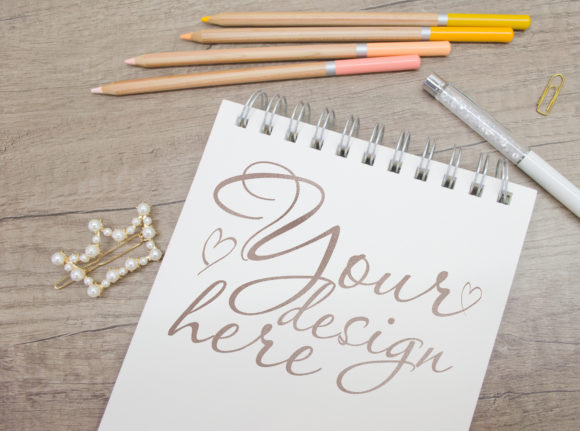 Your
design
here